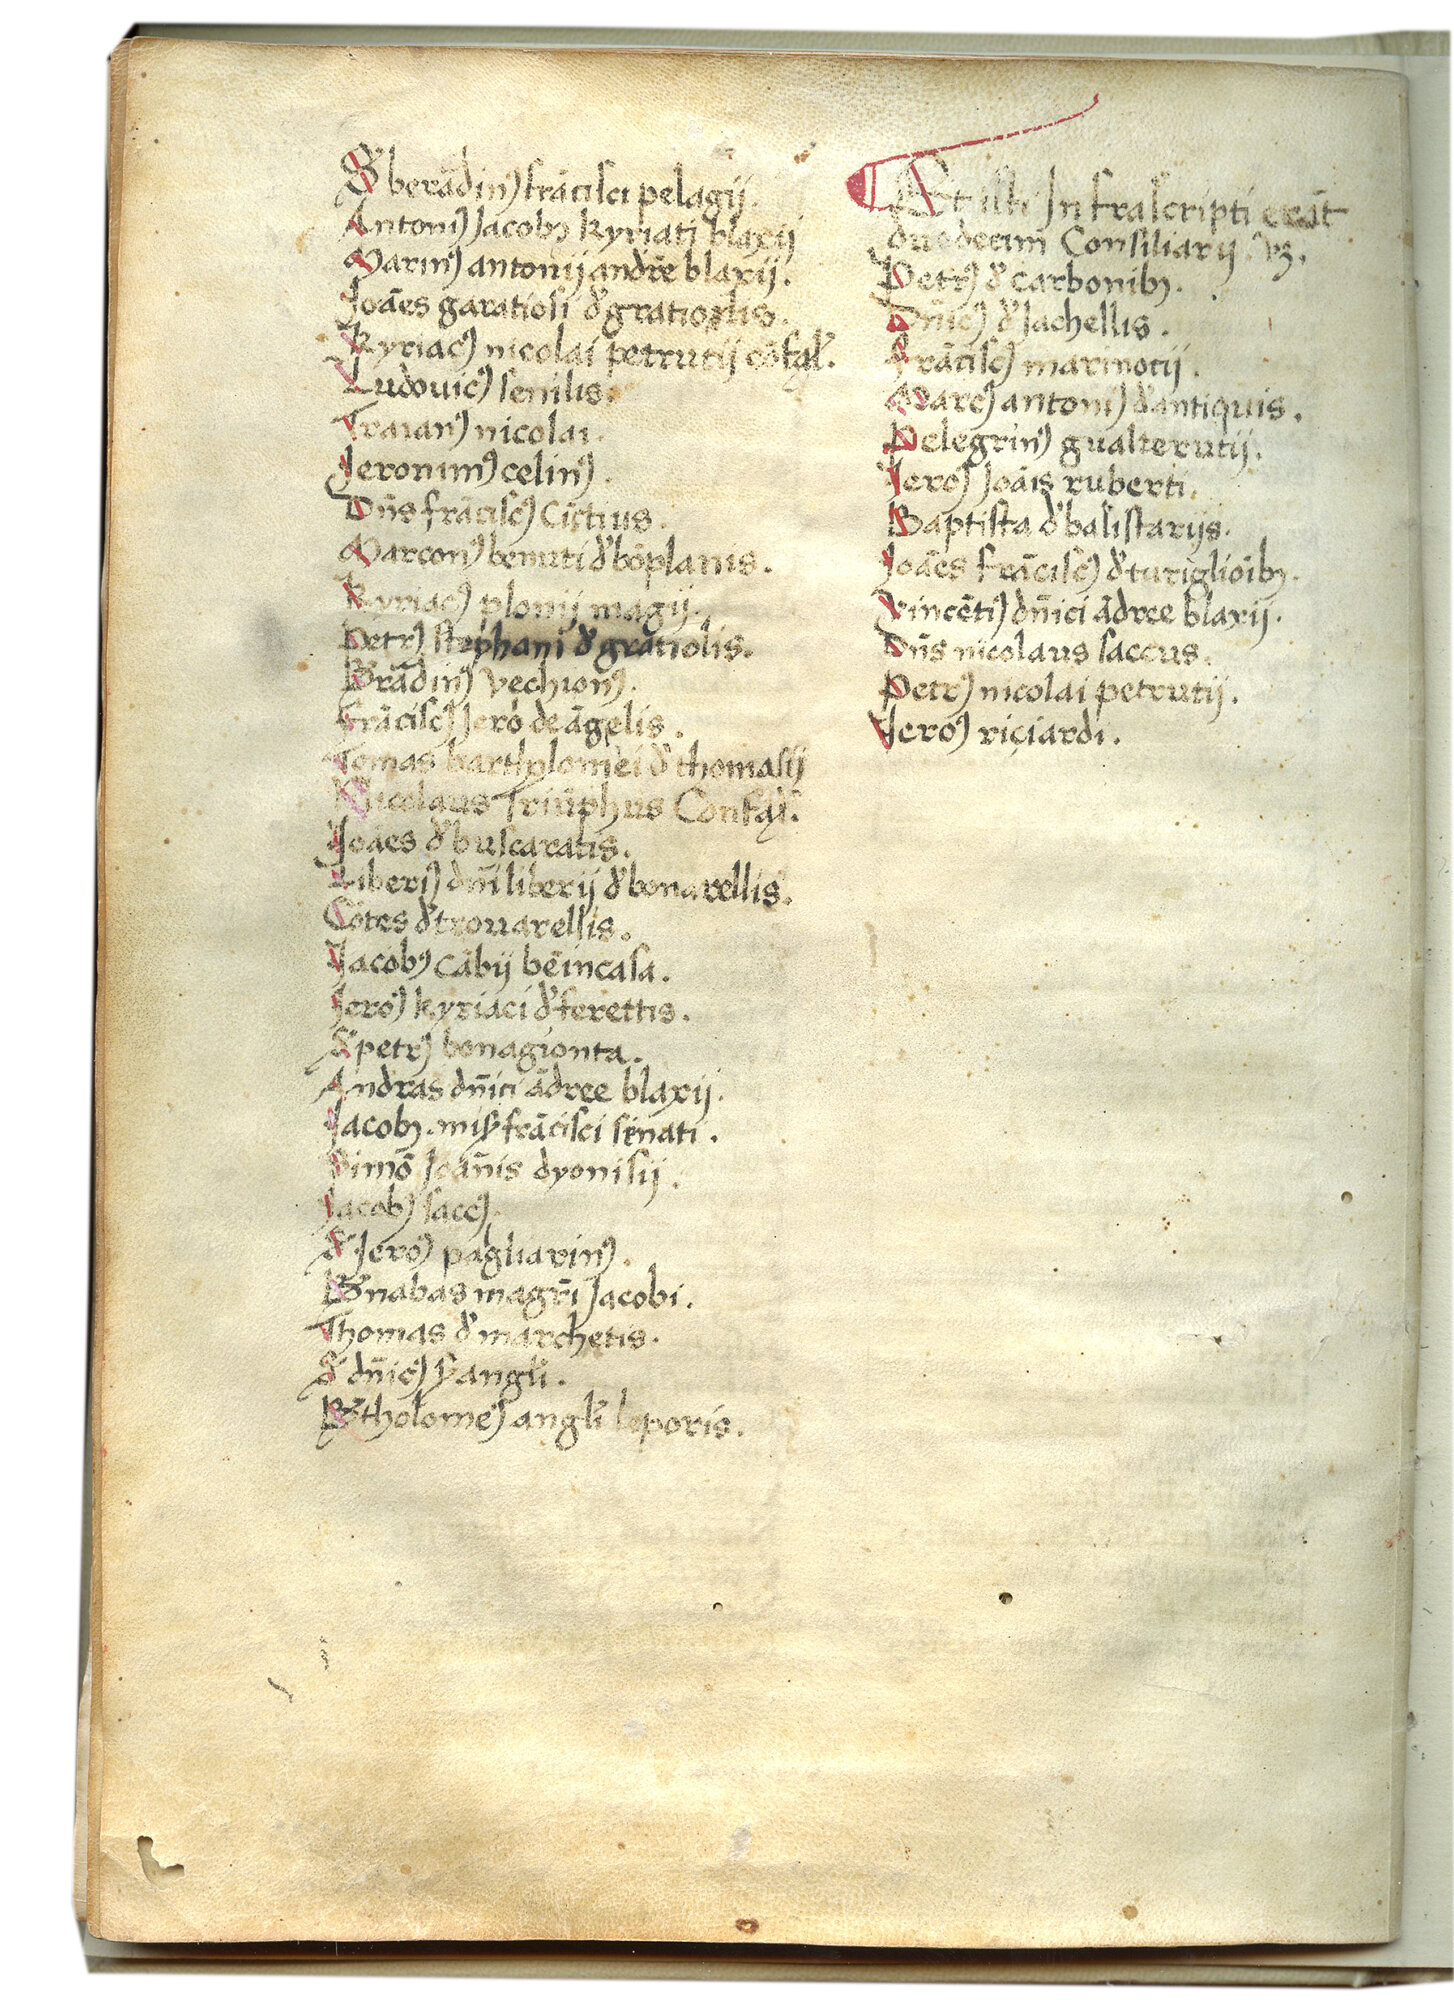 S beradinꝰ frācisci pelagij.
Antoniꝰ Jacobꝰ kyriati blaxij
Marinꝰ antonij andrē blaxij.
Joāes garatiosi d' gratiolis.
Kyriacꝰ nicolai petrutij cōfal'.
Ludovicꝰ senilis.
Traianꝰ nicolai.
Jeronimꝰ celinꝰ.
Dn̄s frāciscꝰ Cintius.
Marconꝰ benuti d' bōplanis.
Kyriacꝰ plonij magij.
Petrꝰ stephani d' gratiolis.
Brādinꝰ vechionꝰ.
Frāciscꝰ Jero de āgelis.
Tomas bartholomei d' thomasij
Nicolaus Triūphus Confal'.
Joāes d' buscaratis.
Liberiꝰ dn̄i liberij d' bonarellis.
Cōtes d' trouarellis.
Jacobꝰ cābij bēincasa.
Jeroꝰ kyriaci d' ferettis.
S' petrꝰ bonagionta.
Andras dn̄ici ādree blaxij.
Jacobꝰ . frācisci senati.
Simō Joān̄is dyonisij.
Jacobꝰ saccꝰ.
S' Jeroꝰ pagliarinꝰ.
B'nabas magr̄i Jacobi.
Thomas d' marchetis.
S' dn̄icꝰ angli.
B'tholomeꝰ angl'i leporis.
At isti Infrascripti erāt
duodecim Consiliarij. vꝫ.
Petrꝰ d' carbonibꝰ.
Dn̄icꝰ d' Jachellis.
Frāciscꝰ marinotij.
Marcꝰ antoniꝰ d' antiquis.
Pelegrinꝰ gualterutij.
Jeroꝰ Joāis ruberti.
Baptista d' balistarijs.
Joāes frāciscꝰ d' turiglioibꝰ.
Vincētiꝰ dn̄ici ādree blaxij.
Dn̄s nicolaus saccus.
Petrꝰ nicolai petrutij.
Jeroꝰ riciardi.